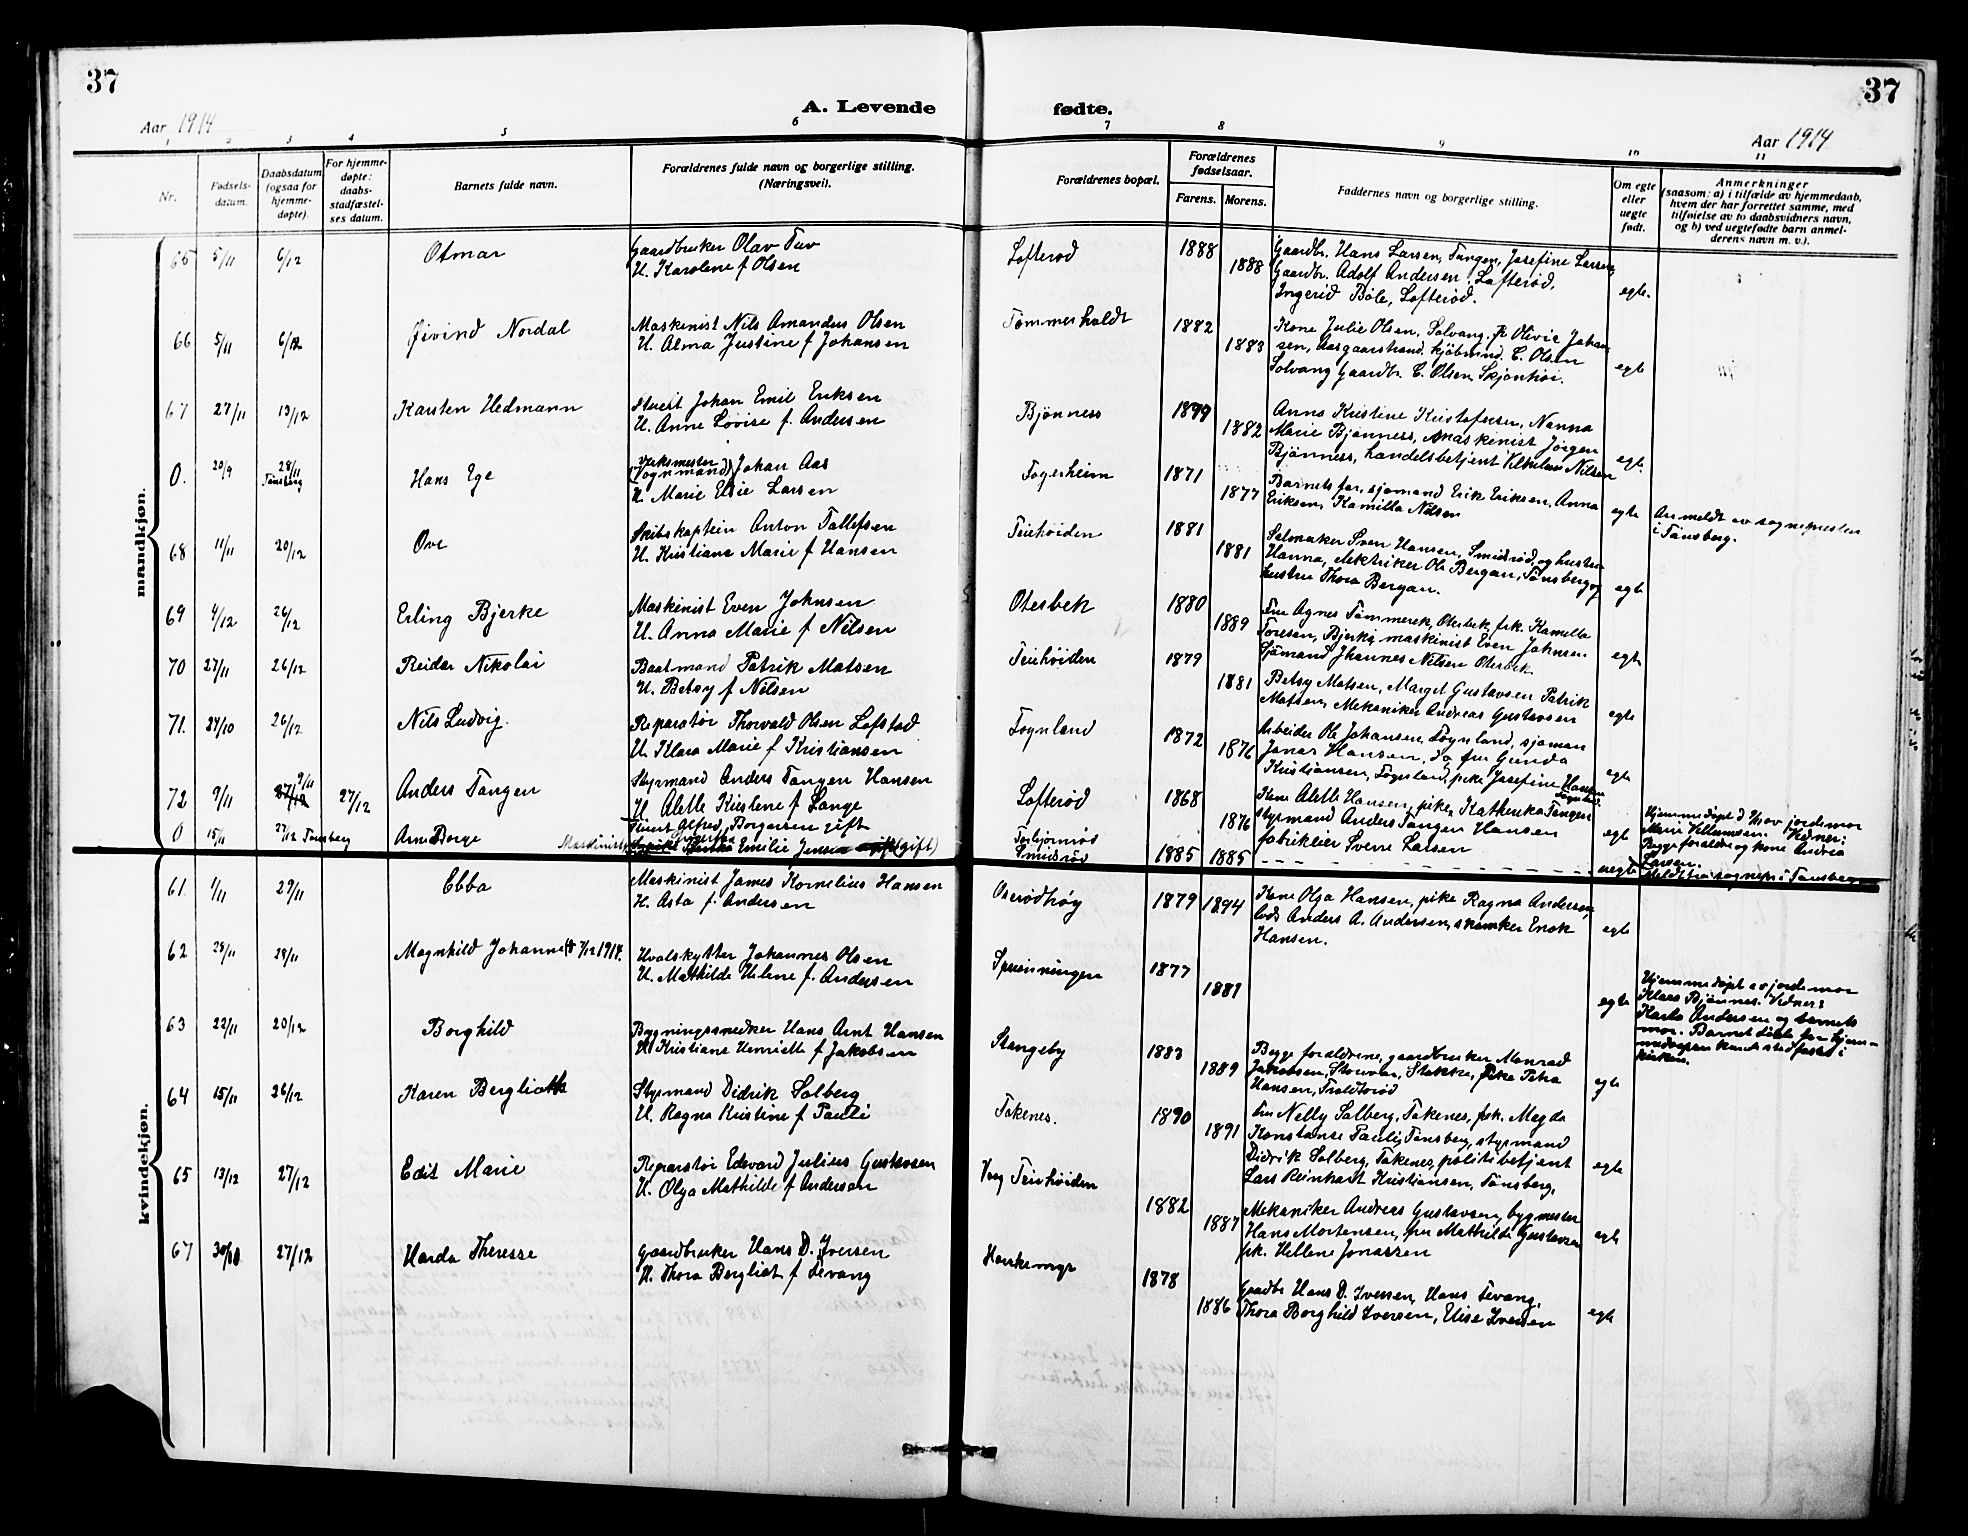 37
37
A. Levende fødte.
Aar 1914
Aar 1914
1 2 3 4 5 6 7 8 9 10 11
Nr.
Fødsels-
datum.
Daabsdatum
(ogsaa for
hjemme-
døpte).
For hjemme-
døpte:
daabs-
stadfæstel-
ses datum.
Barnets fulde navn.
Forældrenes fulde navn og borgerlige stilling.
(Næringsvei).
Forældrenes bopæl.
Forældrenes
fødselsaar.
Farens. Morens.
Faddernes navn og borgerlige stilling.
Om egte
eller
uegte
født.
Anmerkninger
(saasom: a) i tilfælde av hjemmedaab,
hvem der har forrettet samme, med
tilføielse av to daabsvidners navn,
og b) ved uegtefødte barn anmel-
derens navn m. v.).
mandkjøn.
65 5/11 6/12 Otmar Gaardbruker Olav Tuv Lofterød 1888 Gaardbr. Hans Larsen, Tangen, Josefine Larsen,
H. Karolene f Olsen 1888 Gaardbr. Adolf Andersen, Lofterød,
Ingerid Bøle, Lofterød. egte.
66 5/11 6/12 Øivind Nordal Maskinist Nils Amandus Olsen Tømmerholdt 1882 Kone Julie Olsen, Solvang, Olivie Johan
H. Alma Justine f Johansen 1883 sen, Aasgaarstrand, kjøbmnd. C. Olsen
Solvang Gaardbr. C. Olsen egte
67 27/11 13/12 Karsten Hedmann Stuert Johan Emil Eriksen Bjønness 1879 Anna Kristine Kristofersen, Nanna
H. Anne Lovise f. Andersen 1882 Marie Bjønness, maskinist Jørgen
Bjønness, handelsbetjent Vilhelm Nilsen egte
0. 20/9 28/11 Tønsberg Hans Ege Verksmester Johan Aas 1871 Barnets far, sjømand Erik Eriksen, Anna
H Marie Elise Larsen 1877 Eriksen, Kamilla Nilsen egte
Anmeldt av sogneprsten
i Tønsberg.
68 11/11 20/12 Ove Skibskaptein Anton Tallefsen Teiehøiden 1881 Salmaker Sven Hansen, Smidsrød, og hustru
H. Kristiane Marie f Hansen 1881 Hanna, elektriker Ole Bergan, Tønsberg og
hustru Thora Bergan. egte
69 4/12 26/12 Erling Bjerke Maskinist Even Johnsen Oterbek 1880 Fru Agnes Oterbek, frk. Kamilla
H. Anna Marie f Nilsen 1889 Toresen, Bjerke, maskinist Even Johnsen
Sjømand Jhannes Nilsen Oterbek egte
70 27/11 26/12 Reidar Nikolai Baatmand Patrik Matsen Teiehøiden 1879
H. Betsy f Nilsen 1881 Betsy Matsen, Margit Gustavsen Patrik
Matsen, Mekaniker Andreas Gustavsen egte
71. 24/10 26/12 Nils Ludvig. Reparatør Thorvald Olsen Lofstad Tognland 1872 Arbeider Ole Johansen, Tognland, sjøman
H. Klara Marie f Kristiansen 1876 Jonas Hansen, do fru Gunda
Kristiansen, Tognland, pike Josefine Hansen egte
72 9/11 9/11 27/12 27/12 Anders Tangen Styrmand Anders Tangen Hansen Lofterød 1868 Kone Aletle Hansen, pike Kathinka Tangen
H Aletle Kirstene f Lange 1876 styrmand Anders Tangen Hansen
fabrikeier Sverre Larsen egte
Hjemmedøpt jordemor
Marie Villumsen. Vidner:
Begge foraldre og kone Andrea
Larsen.
0 15/11 27/12 Tønsberg Arne Borge Alfred Borgersen gift
Maskinist Emilie Jensen (gift) Smidsrød 1885 1885 uegte
kvindekjøn.
61. 1/11 29/11 Ebba Maskinist James Kornelius Hansen 1879 1894 Kone Olga Hansen, pike Ragna Andersen,
H. Asta f. Andersen lods Anders A. Andersen, Enok
Hansen. egte
62 28/11 28/11 Magnhild Johanne († 7/12 1914. Hvalskytter Johannes Olsen 1877
H. Mathilde Helene f. Andersen 1881 egte
Hjemmedøpt av jordemor
Klara Bjønnes. Vidner:
Karla Andersen og barnets
mor. Barnet døde før hjem-
medaapen kunde stadfæstes i
kirken.
63 22/11 20/12 Borghild Bygningssnedker Hans Arnt Hansen Stangeby 1883 Begge forældrene, gaardbruker Monrad
H. Kristiane Henriette f Jakobsen 1889 Jakobsen, Stokke, pike Petra
Hansen, egte
64 15/11 26/12 Karen Bergliot Styrmand Didrik Solberg Tokenes. 1890 Fru Nelly Solberg, Tokenes, frk. Magda
H. Ragna Kristine f Pauli 1891 Konstanse Pauli, Tønsberg, styrmand
Didrik Solberg, Tokenes, politibetjent
Lars Reinhart Kristiansen, Tønsberg, egte
65 13/12 27/12 Edit Marie Reparatør Edevard Julius Gustavsen Teiehøiden
H. Olga Mathilde f Andersen 1882
1887 Mekaniker Andreas Gustavsen, bygmester
Hans Mortensen, fru Mathilde Gustavsen
frk. Hellene Jonassen egte
67 27/12 Harda Theresse Gaardbruker Hans D. Iversen 1878
H. Thora Bergliot f Tevang 1886 Gaadbr Hans D. Iversen, Hans Tevang,
Thora Borghild Iversen, Elise Iversen egte